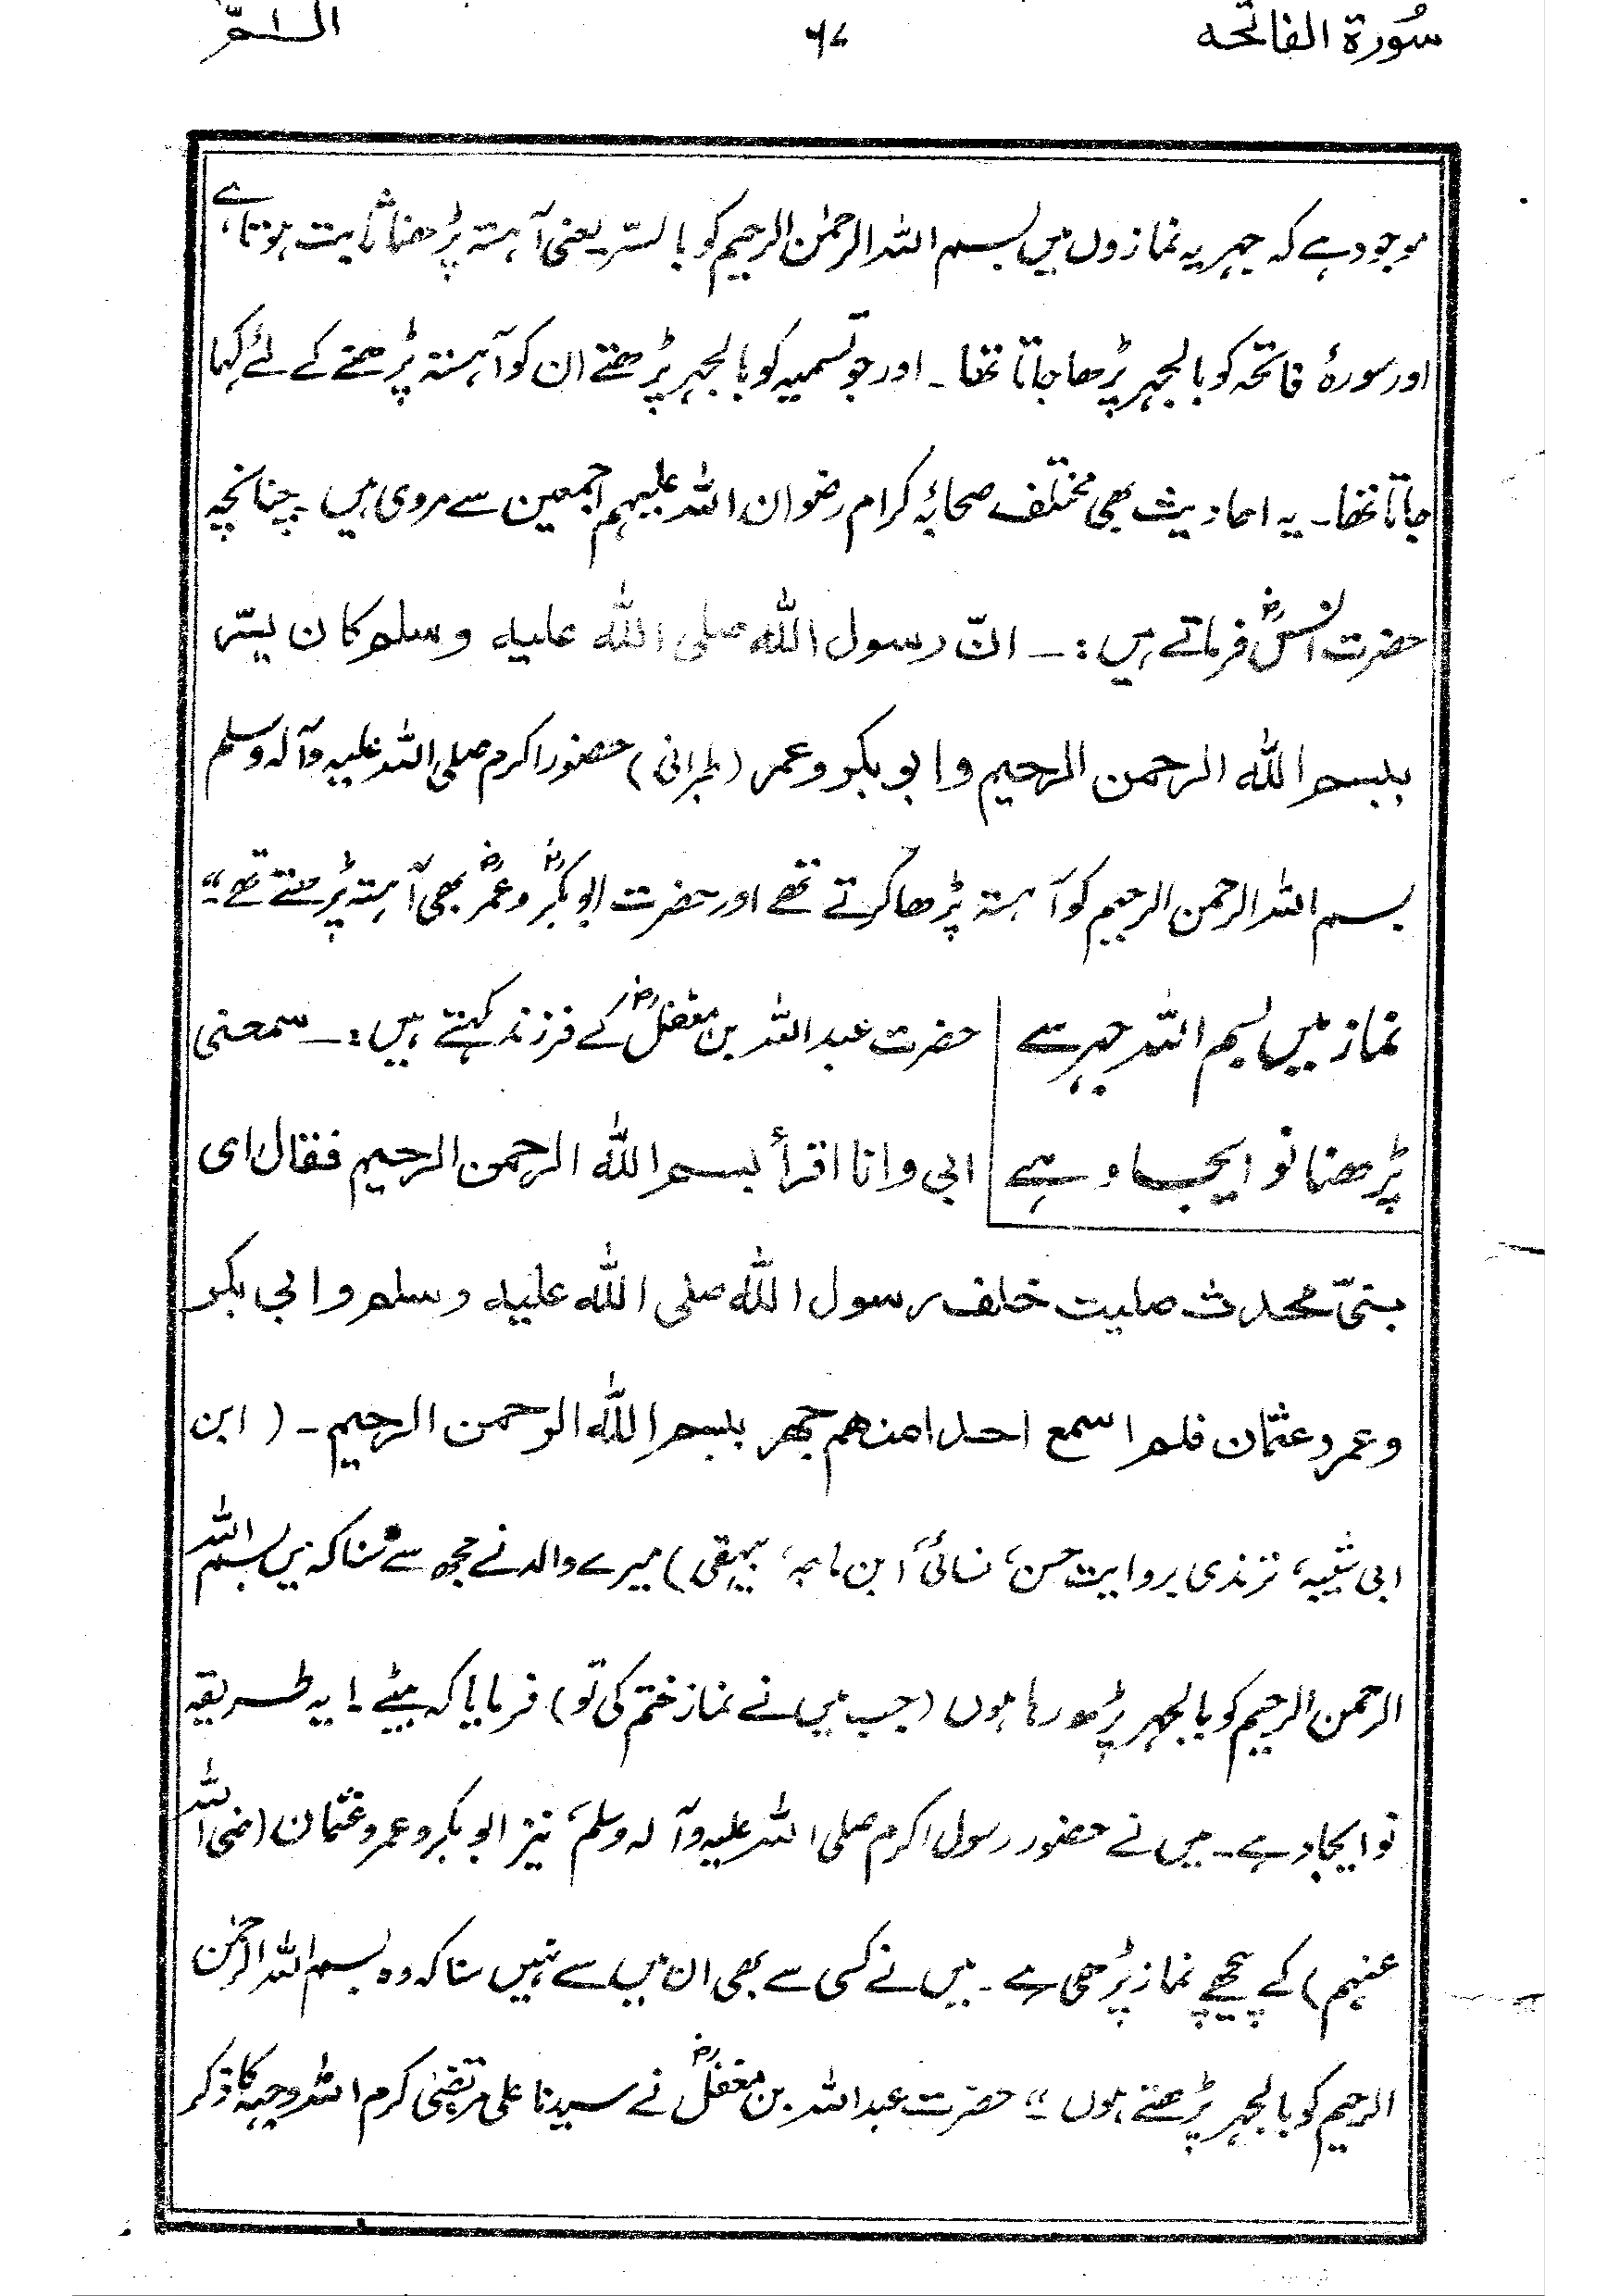 سُورۃ الفاتحہ
۶۷
الٓـــمّٓ
موجود ہے کہ جہریہ نمازوں میں بسم اللہ الرحمٰن الرحیم کو بالسّر یعنی آہستہ پڑھنا ثابت ہوتا ہے،
اور سورۂ فاتحہ کو بالجہر پڑھا جاتا تھا۔ اور جو تسمیہ کو بالجہر پڑھتے ان کو آہستہ پڑھنے کے لئے کہا
جاتا تھا۔ یہ احادیث بھی مختلف صحابۂ کرام رضوان اللہ علیہم اجمعین سے مروی ہیں۔ چنانچہ
حضرت انسؓ فرماتے ہیں :۔ انّ رسول اللہ صلی اللہ علیہ وسلم کان یسّر
ببسم اللہ الرحمن الرحیم وابو بکر وعمر (طبرانی) حضور اکرم صلی اللہ علیہ وآلہ وسلم
بسم اللہ الرحمن الرحیم کو آہستہ پڑھا کرتے تھے اور حضرت ابوبکرؓ و عمرؓ بھی آہستہ پڑھتے تھے۔"
نماز میں بسم اللہ جہر سے
پڑھنا نو ایجاد ہے
حضرت عبداللہ بن مغفلؓ کے فرزند کہتے ہیں :۔ سمعنی
ابی وانا اقرأ بسم اللہ الرحمن الرحیم فقال ای
بنیّ محدث صلیت خلف رسول اللہ صلی اللہ علیہ وسلم وابی بکر
وعمر وعثمان فلم اسمع احدا منھم جھر ببسم اللہ الرحمن الرحیم۔ (ابن
ابی شیبہ، ترمذی بروایت حسن، نسائی، ابن ماجہ، بیہقی) میرے والد نے مجھ سے سنا کہ میں بسم اللہ
الرحمن الرحیم کو بالجہر پڑھ رہا ہوں (جب میں نے نماز ختم کی تو) فرمایا کہ بیٹے! یہ طریقہ
نو ایجاد ہے۔ میں نے حضور رسول اکرم صلی اللہ علیہ وآلہ وسلم، نیز ابوبکر و عمر و عثمان (رضی اللہ
عنہم) کے پیچھے نماز پڑھی ہے۔ میں نے کسی سے بھی ان میں سے نہیں سنا کہ وہ بسم اللہ الرحمٰن
الرحیم کو بالجہر پڑھتے ہوں۔" حضرت عبداللہ بن مغفلؓ نے سیدنا علی مرتضیٰ کرم اللہ وجہہ کا ذکر